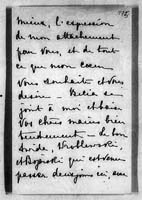 mieux, l'expression
de mon attachement
pour vous, et de tout
ce que mon cœur
vous souhaite et vous
désire — se
joint à moi et baise
vos chères mains bien
tendrement — Le bon
Wroblewski,
et qui est venu
passer deux jours ici,